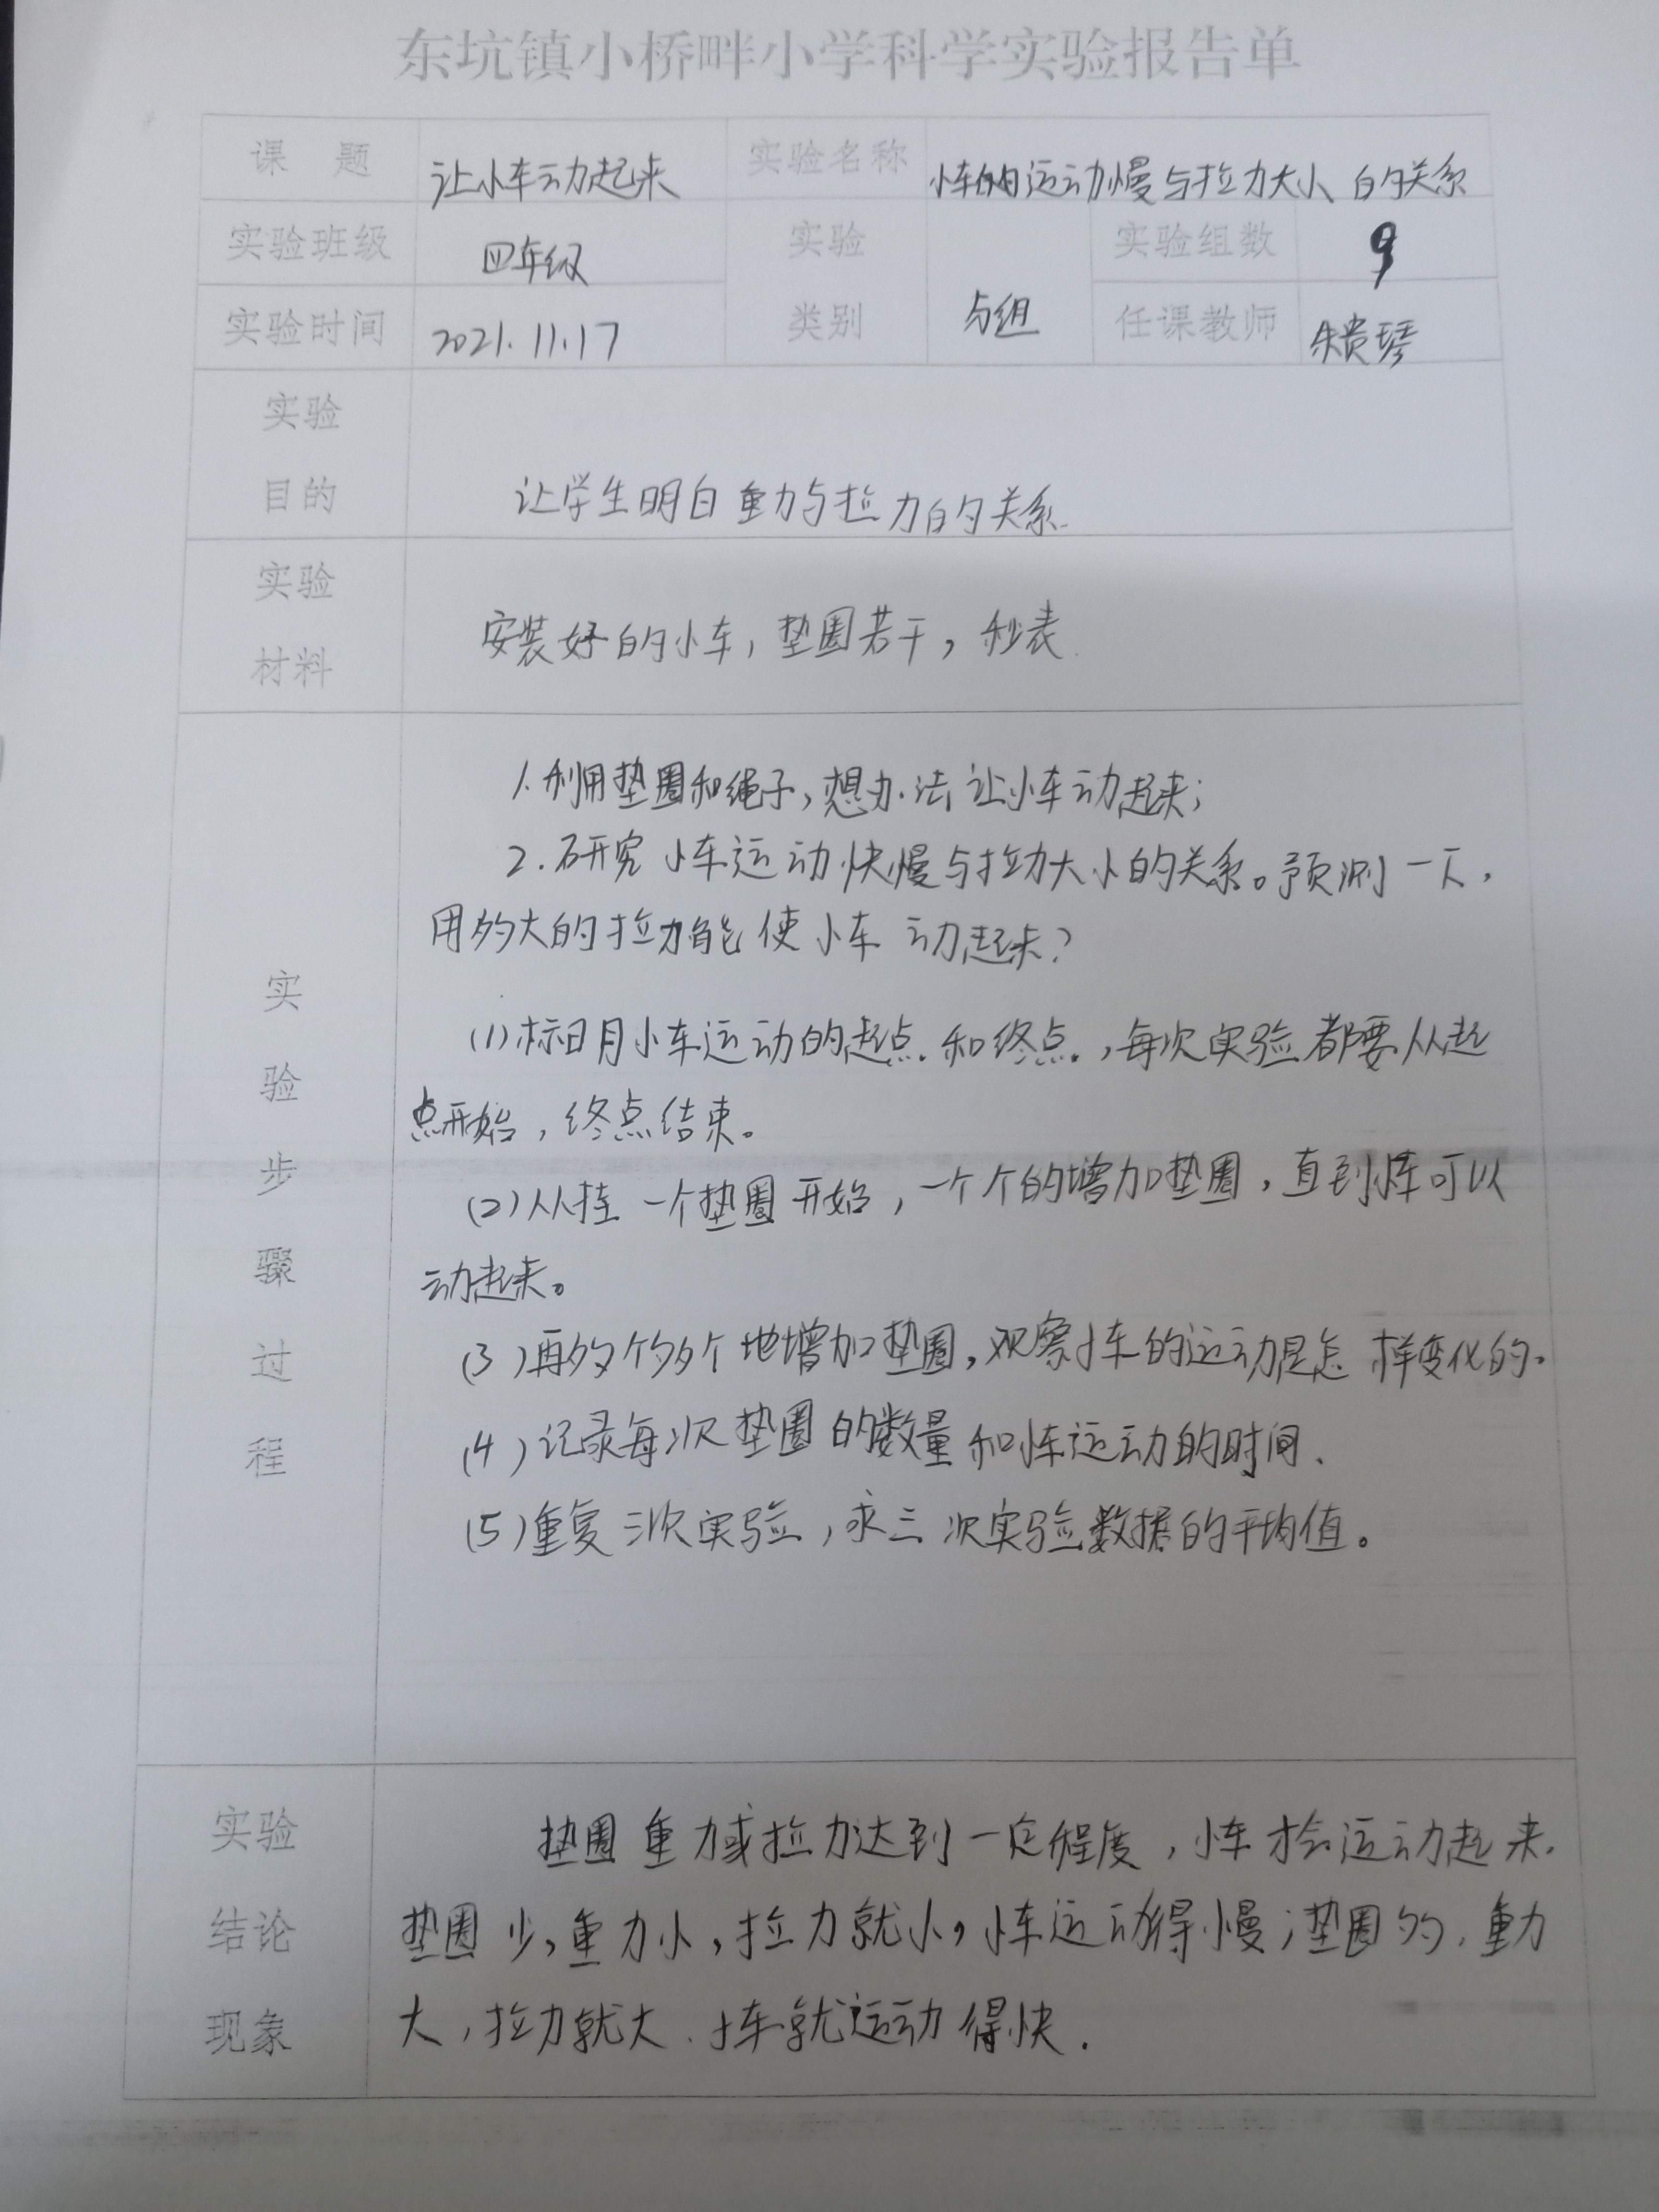 东坑镇小桥畔小学科学实验报告单
课 题 让小车动起来 实验名称 小车的运动慢与拉力大小的关系
实验班级 四年级 实验 实验组数 9
实验时间 2021.11.17 类别 与组 任课教师 朱贵琴
实验
目的 让学生明白重力与拉力的关系.
实验
安装好的小车,垫圈若干,秒表.
材料
1.利用垫圈和绳子,想办法让小车动起来;
2.研究小车运动快慢与拉力大小的关系。预测一下,
用多大的拉力能使小车动起来?
(1)标明小车运动的起点和终点,每次实验都要从起
点开始,终点结束。
(2)从挂一个垫圈开始,一个个的增加垫圈,直到小车可以
动起来。
(3)再多个多个地增加垫圈,观察小车的运动是怎样变化的。
(4)记录每次垫圈的数量和小车运动的时间.
(5)重复三次实验,求三次实验数据的平均值。
实
验
步
骤
过
程
实验 垫圈重力或拉力达到一定程度,小车才会运动起来.
结论 垫圈少,重力小,拉力就小,小车运动得慢;垫圈多,重力
现象 大,拉力就大.小车就运动得快.